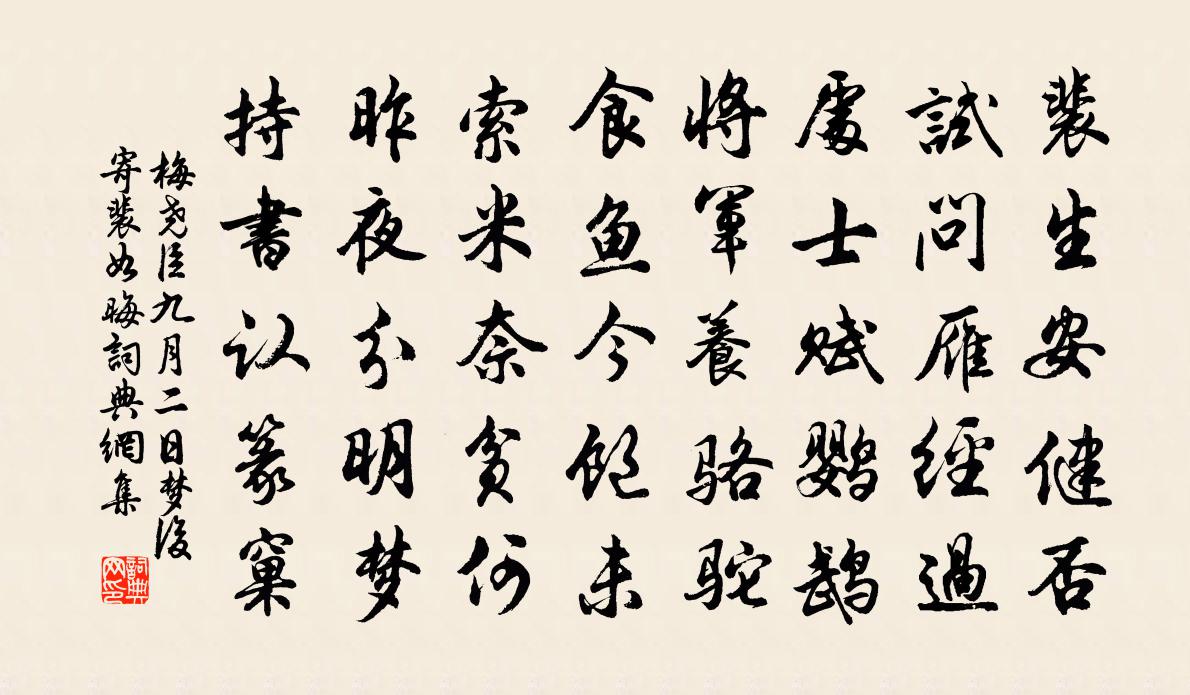 裴生安健否
試問雁經過
處士赋鹦鵡
將軍養骆駝
食鱼今飽未
索米奈贫何
昨夜分明梦
持書认篆窠
梅尧臣九月二日梦後
寄裴如晦詞典網集
詞典网印